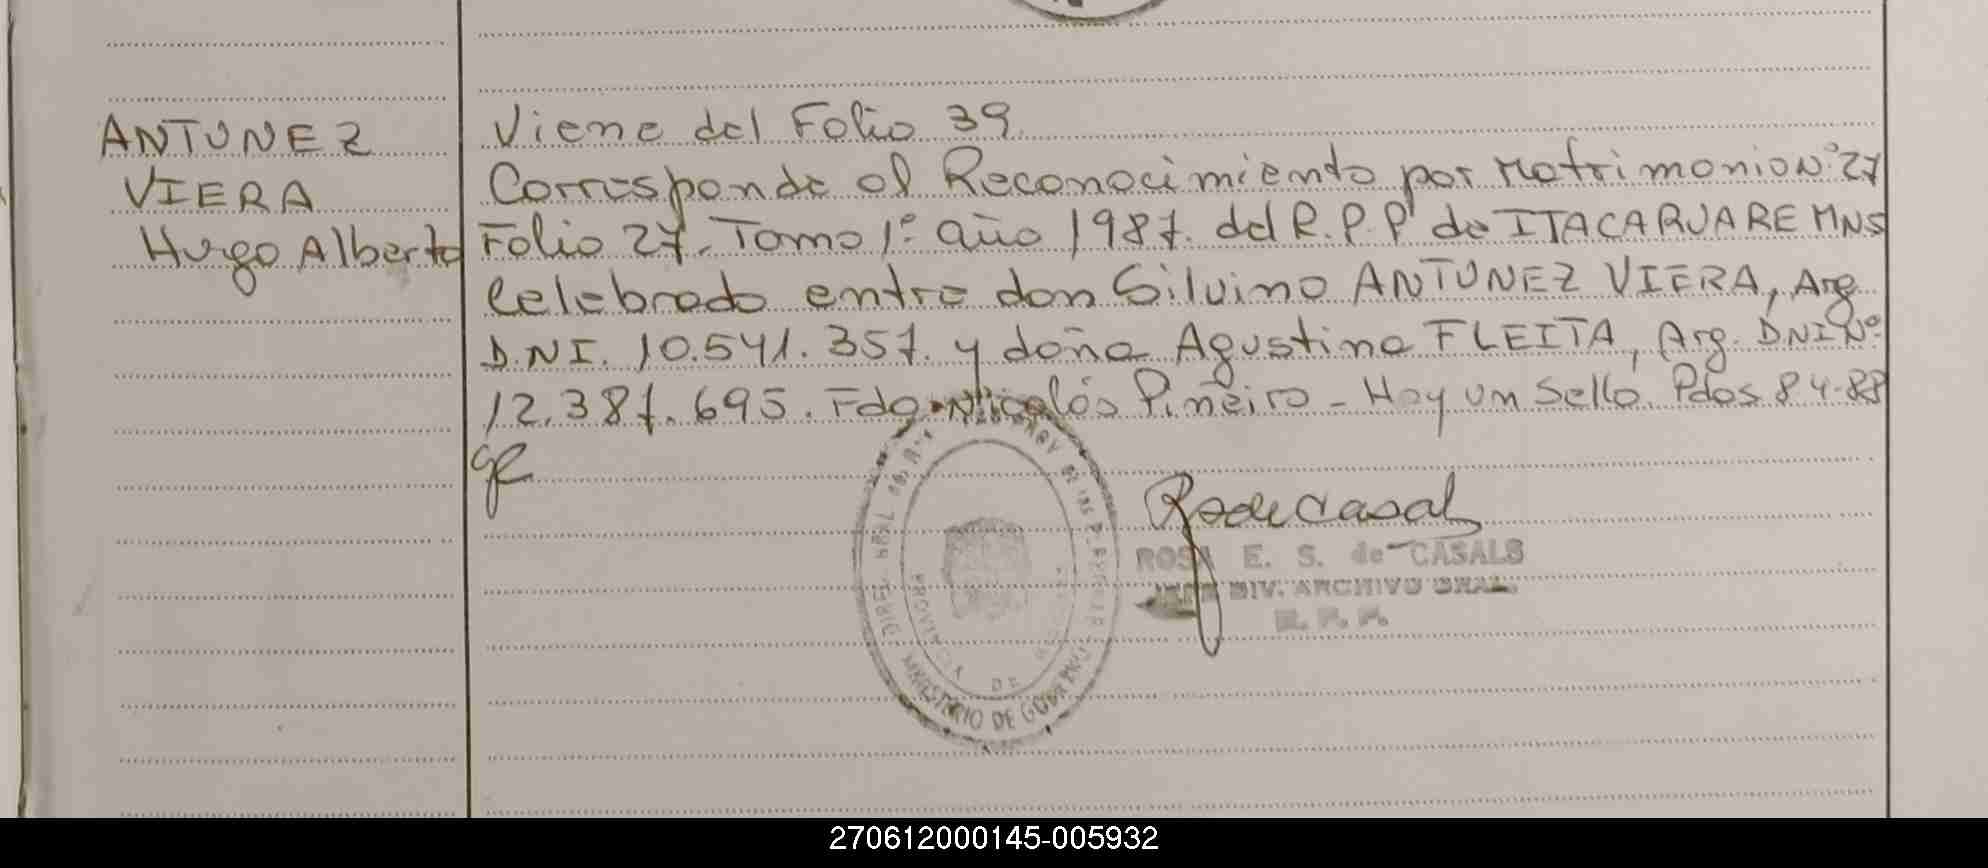 ANTUNEZ
VIERA
Hugo Alberto
Viene del Folio 39
Corresponde al Reconocimiento por Matrimonio Nº 27
Folio 27. Tomo 1º año 1987. del R.P.P de ITACARUARE MNS
Celebrado entre don Silvino ANTUNEZ VIERA, Arg
D.N.I. 10.541.357. y doña Agustina FLEITA, Arg. DNI Nº
12.387.695. Fdo. Nicolás Piñeiro - Hay un Sello. Pdos 84-88
ROSA E. S. de CASALS
JEFE DIV. ARCHIVO GRAL.
R. P. P.
PROVINCIA DE
MINISTERIO DE GOBIERNO
270612000145-005932